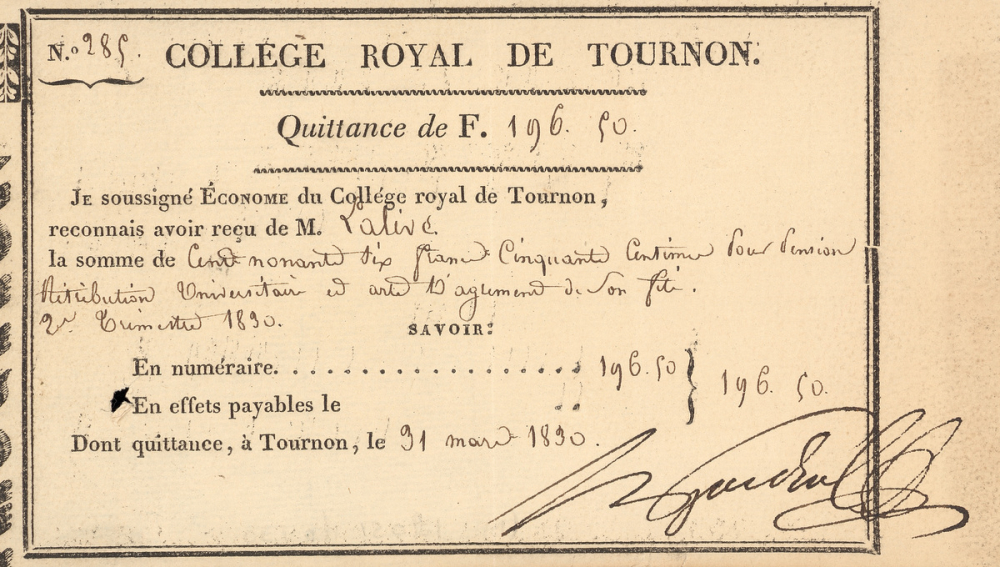 N.o 285. COLLÉGE ROYAL DE TOURNON.
Quittance de F. 196. 50.
JE soussigné ÉCONOME du Collége royal de Tournon,
reconnais avoir reçu de M. Lalive
la somme de Cent nonante Six francs Cinquante Centimes Pour Pension
Rétribution Universitaire et arts D'agrement de Son fils.
2e Trimestre 1830.
SAVOIR:
En numéraire. . . . . . . . . . . . . . . . . . . 196.50 } 196. 50.
En effets payables le ..
Dont quittance, à Tournon, le 31 mars 1830.